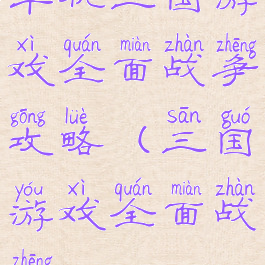 xì quán miàn zhàn zhēng
戏全面战争
gōng lüè sān guó
攻略（三国
yóu xì quán miàn zhàn
游戏全面战
zhēng